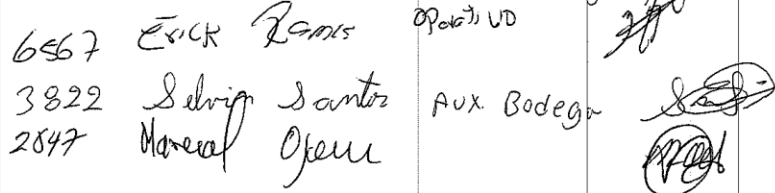 6567 Erick Ramis Operativo
3822 Selvin Santos Aux. Bodega
2847 Marcial